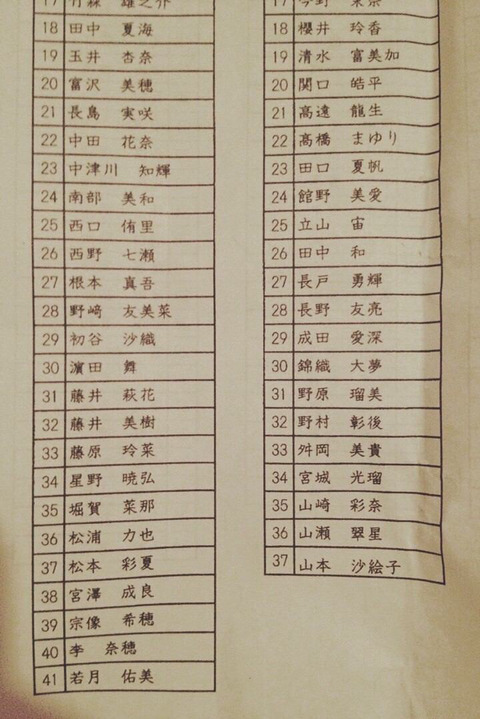 17 竹森 雄之介
18 田中 夏海
19 玉井 杏奈
20 富沢 美穂
21 長島 実咲
22 中田 花奈
23 中津川 知輝
24 南部 美和
25 西口 侑里
26 西野 七瀬
27 根本 真吾
28 野﨑 友美菜
29 初谷 沙織
30 濵田 舞
31 藤井 萩花
32 藤井 美樹
33 藤原 玲菜
34 星野 暁弘
35 堀賀 菜那
36 松浦 力也
37 松本 彩夏
38 宮澤 成良
39 宗像 希穂
40 李 奈穂
41 若月 佑美
17
18 櫻井 玲香
19 清水 富美加
20 関口 皓平
21 高遠 龍生
22 高橋 まゆり
23 田口 夏帆
24 館野 美愛
25 立山 宙
26 田中 和
27 長戸 勇輝
28 長野 友亮
29 成田 愛深
30 錦織 大夢
31 野原 瑠美
32 野村 彰後
33 舛岡 美貴
34 宮城 光瑠
35 山崎 彩奈
36 山瀬 翠星
37 山本 沙絵子